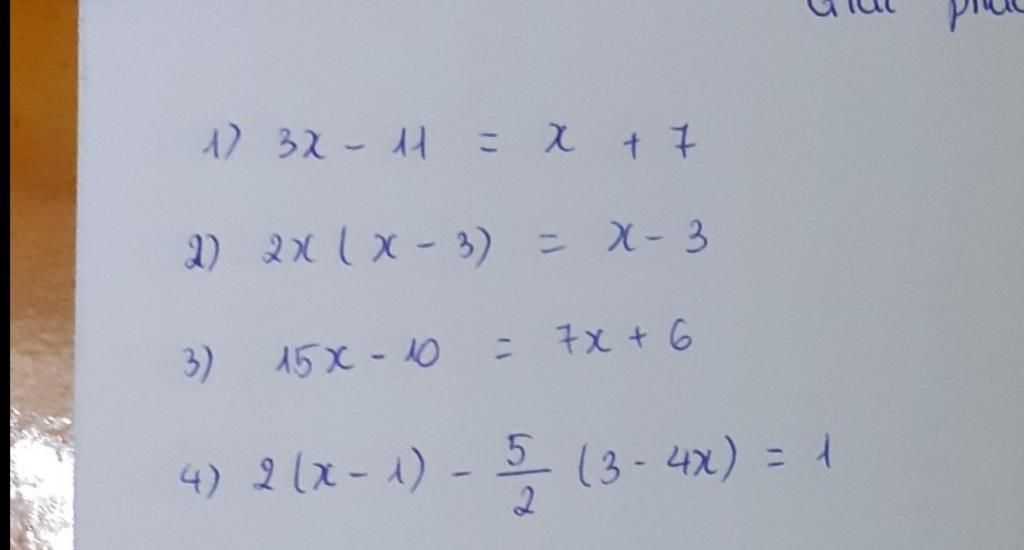 1) 3x - 11 = x + 7
2) 2x ( x - 3) = x - 3
3) 15x - 10 = 7x + 6
4) 2 (x - 1) - 5/2 (3 - 4x) = 1